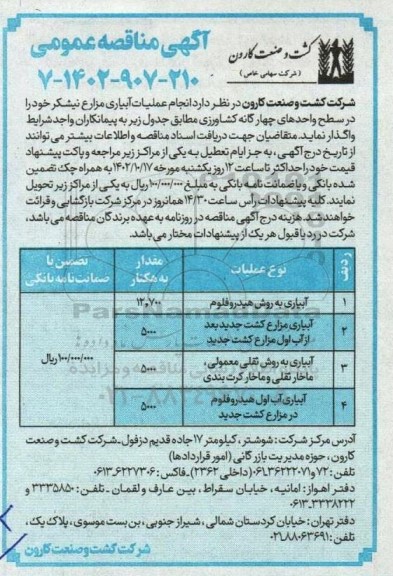 کشت و صنعت کارون
(شرکت سهامی خاص)
آگهی مناقصه عمومی
۷-۱۴۰۲-۹۰۷-۲۱۰
شرکت کشت و صنعت کارون در نظر دارد انجام عملیات آبیاری مزارع نیشکر خود را
در سطح واحدهای چهار گانه کشاورزی مطابق جدول زیر به پیمانکاران واجد شرایط
واگذار نماید. متقاضیان جهت دریافت اسناد مناقصه و اطلاعات بیشتر می توانند
از تاریخ درج آگهی، به جز ایام تعطیل به یکی از مراکز زیر مراجعه و پاکت پیشنهاد
قیمت خود را حداکثر تا ساعت ۱۲ روز یکشنبه مورخه ۱۴۰۲/۱۰/۱۷ به همراه چک تضمین
شده بانکی و یا ضمانت نامه بانکی به مبلغ ۱۰۰/۰۰۰/۰۰۰ ریال به یکی از مراکز زیر تحویل
نمایند. کلیه پیشنهادات رأس ساعت ۱۴/۳۰ همانروز در مرکز شرکت بازگشایی و قرائت
خواهند شد. هزینه درج آگهی مناقصه در روزنامه به عهده برندگان مناقصه می باشد،
شرکت در رد یا قبول هر یک از پیشنهادات مختار می باشد.
ردیف نوع عملیات مقدار به هکتار تضمین یا ضمانت نامه بانکی
۱ آبیاری به روش هیدروفلوم ۱۲،۷۰۰
۲ آبیاری مزارع کشت جدید بعد از آب اول مزارع کشت جدید ۵۰۰۰
۳ آبیاری به روش ثقلی معمولی ماخار ثقلی و ماخار کرت بندی ۵۰۰۰
۴ آبیاری آب اول هیدروفلوم در مزارع کشت جدید ۵۰۰۰
۱۰۰/۰۰۰/۰۰۰ ریال
آدرس مرکز شرکت: شوشتر، کیلومتر ۱۷ جاده قدیم دزفول - شرکت کشت و صنعت
کارون، حوزه مدیریت بازرگانی (امور قراردادها)
تلفن: ۷۲ و ۰۶۱-۳۶۲۲۲۰۷۱ (داخلی ۲۳۶۲) - فاکس: ۰۶۱۳-۶۲۲۷۳۰۶
دفتر اهواز: امانیه، خیابان سقراط، بین عارف و لقمان - تلفن: ۳۳۳۵۸۵۰ و
۰۶۱۳-۳۳۳۸۲۲۲
دفتر تهران: خیابان کردستان شمالی، شیراز جنوبی، بن بست موسوی، پلاک یک،
تلفن: ۰۲۱-۸۸۰۶۳۶۹۱
شرکت کشت و صنعت کارون